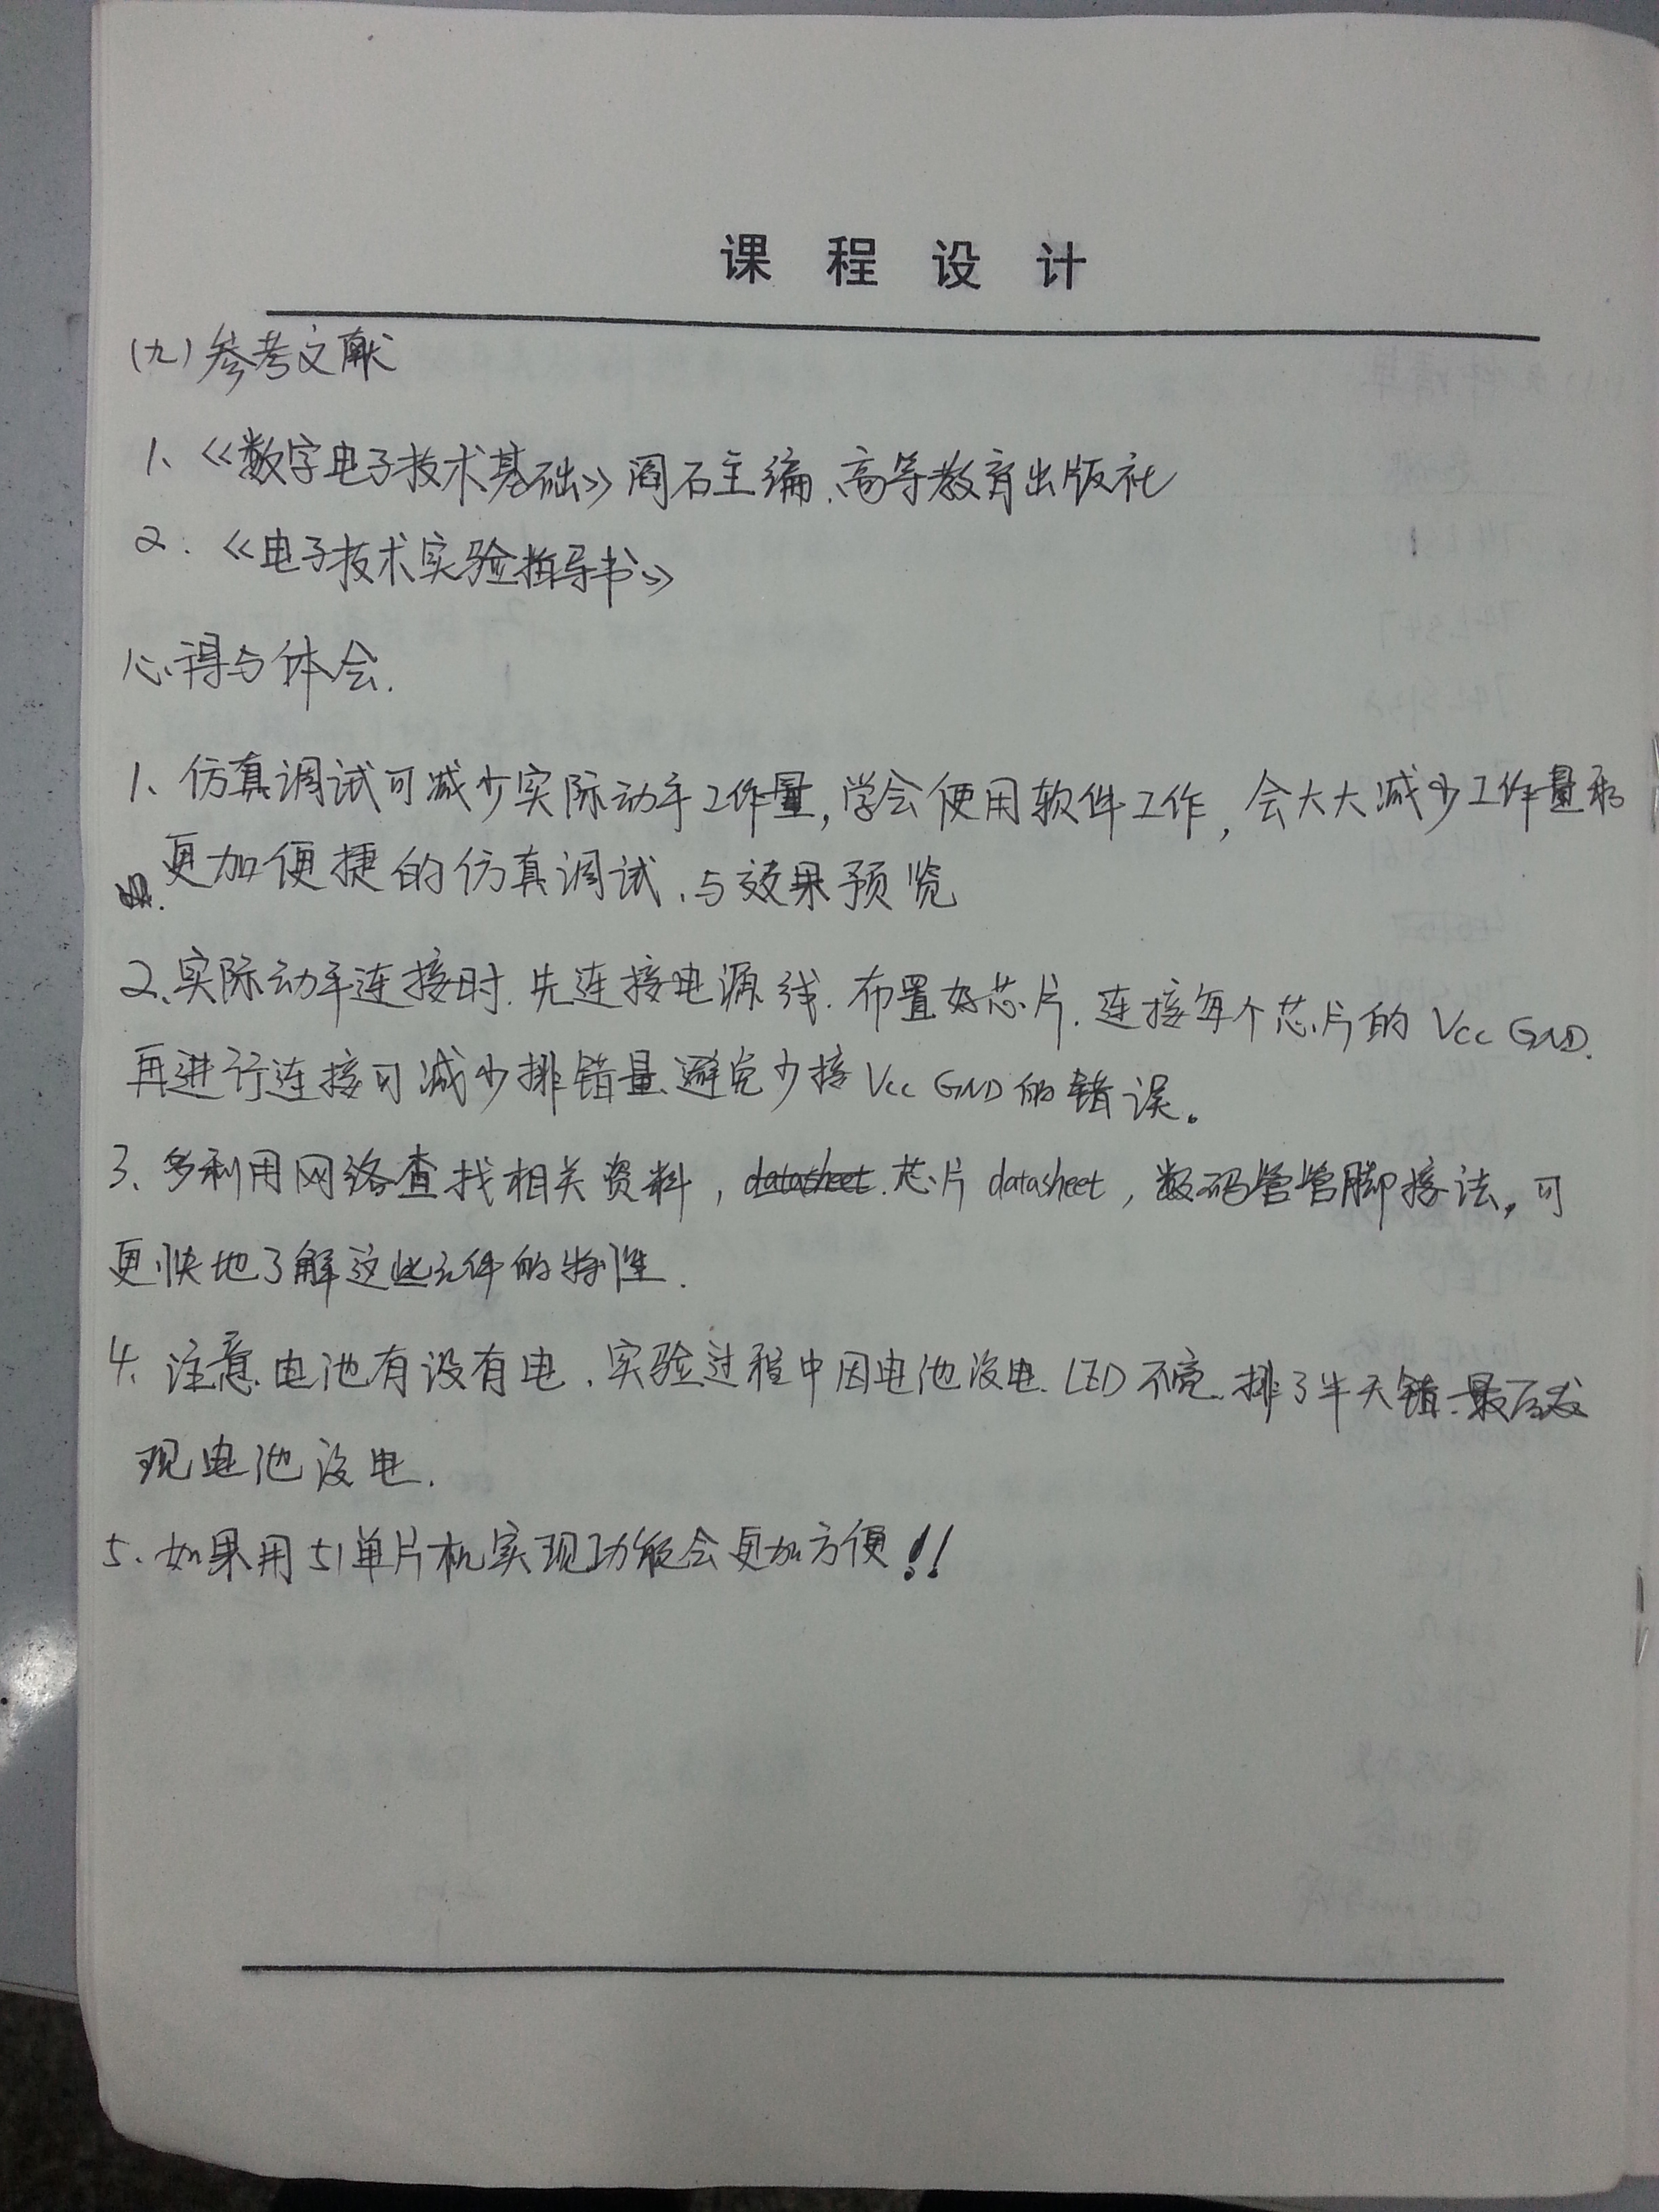 课程设计
(九)参考文献
1、《数字电子技术基础》阎石主编、高等教育出版社
2.《电子技术实验指导书》
心得与体会.
1、仿真调试可减少实际动手工作量,学会使用软件工作,会大大减少工作量和
更加便捷的仿真调试、与效果预览
2、实际动手连接时.先连接电源线.布置好芯片.连接每个芯片的 Vcc GND.
再进行连接可减少排错量.避免少接 Vcc GND 的错误。
3、多利用网络查找相关资料,datasheet.芯片 datasheet,数码管管脚接法,可
更快地了解这些元件的特性.
4、注意电池有没有电.实验过程中因电池没电.LED不亮.排了半天错.最后发
现电池没电.
5、如果用51单片机实现功能会更加方便!!